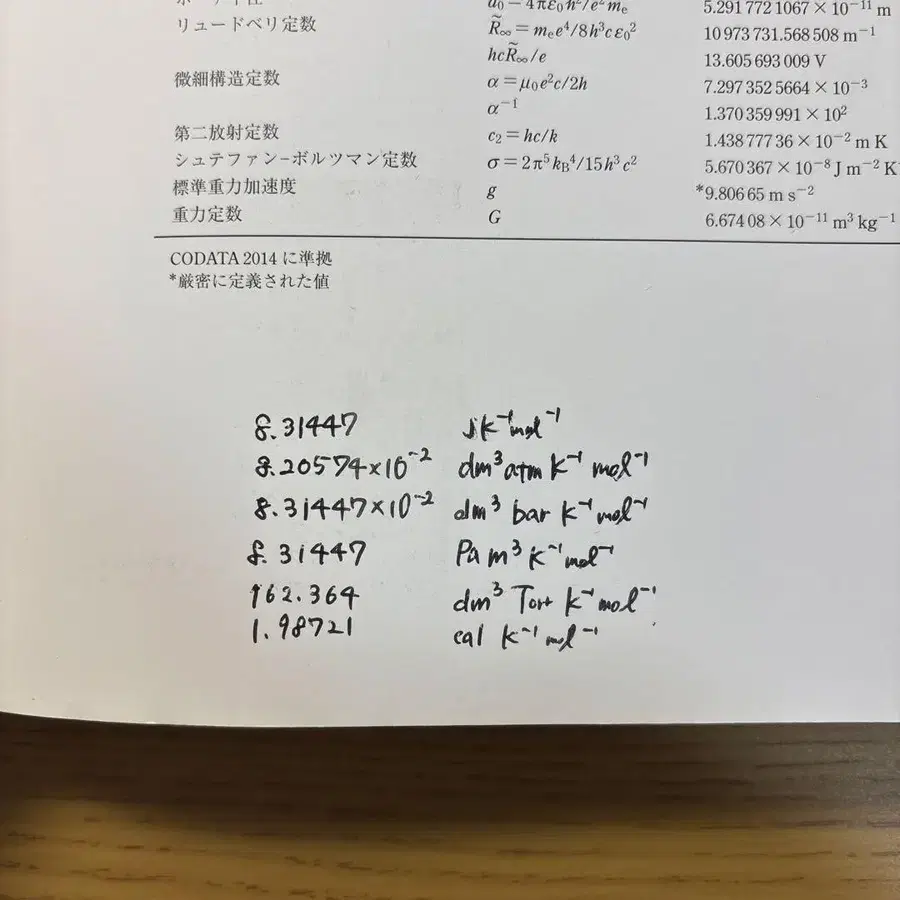 a₀ = 4πε₀ħ²/e²mₑ 5.291 772 1067 × 10⁻¹¹ m
リュードベリ定数 R̃∞ = mₑe⁴/8h³cε₀² 10 973 731.568 508 m⁻¹
hcR̃∞/e 13.605 693 009 V
微細構造定数 α = μ₀e²c/2h 7.297 352 5664 × 10⁻³
α⁻¹ 1.370 359 991 × 10²
第二放射定数 c₂ = hc/k 1.438 777 36 × 10⁻² m K
シュテファン−ボルツマン定数 σ = 2π⁵k_B⁴/15h³c² 5.670 367 × 10⁻⁸ J m⁻² K
標準重力加速度 g *9.806 65 m s⁻²
重力定数 G 6.674 08 × 10⁻¹¹ m³ kg⁻¹
CODATA 2014 に準拠
*厳密に定義された値
8.31447 JK⁻¹mol⁻¹
8.20574×10⁻² dm³ atm K⁻¹ mol⁻¹
8.31447×10⁻² dm³ bar K⁻¹ mol⁻¹
8.31447 Pa m³ K⁻¹ mol⁻¹
162.364 dm³ Torr K⁻¹ mol⁻¹
1.98721 cal K⁻¹ mol⁻¹